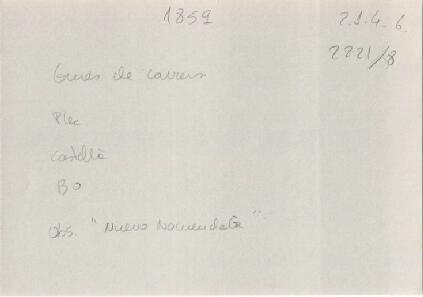 1859
2.1.4.6.
2221/8
Guies de carrers
Plec
Castellà
BO
Obs. "Nuevo Nomenclator"